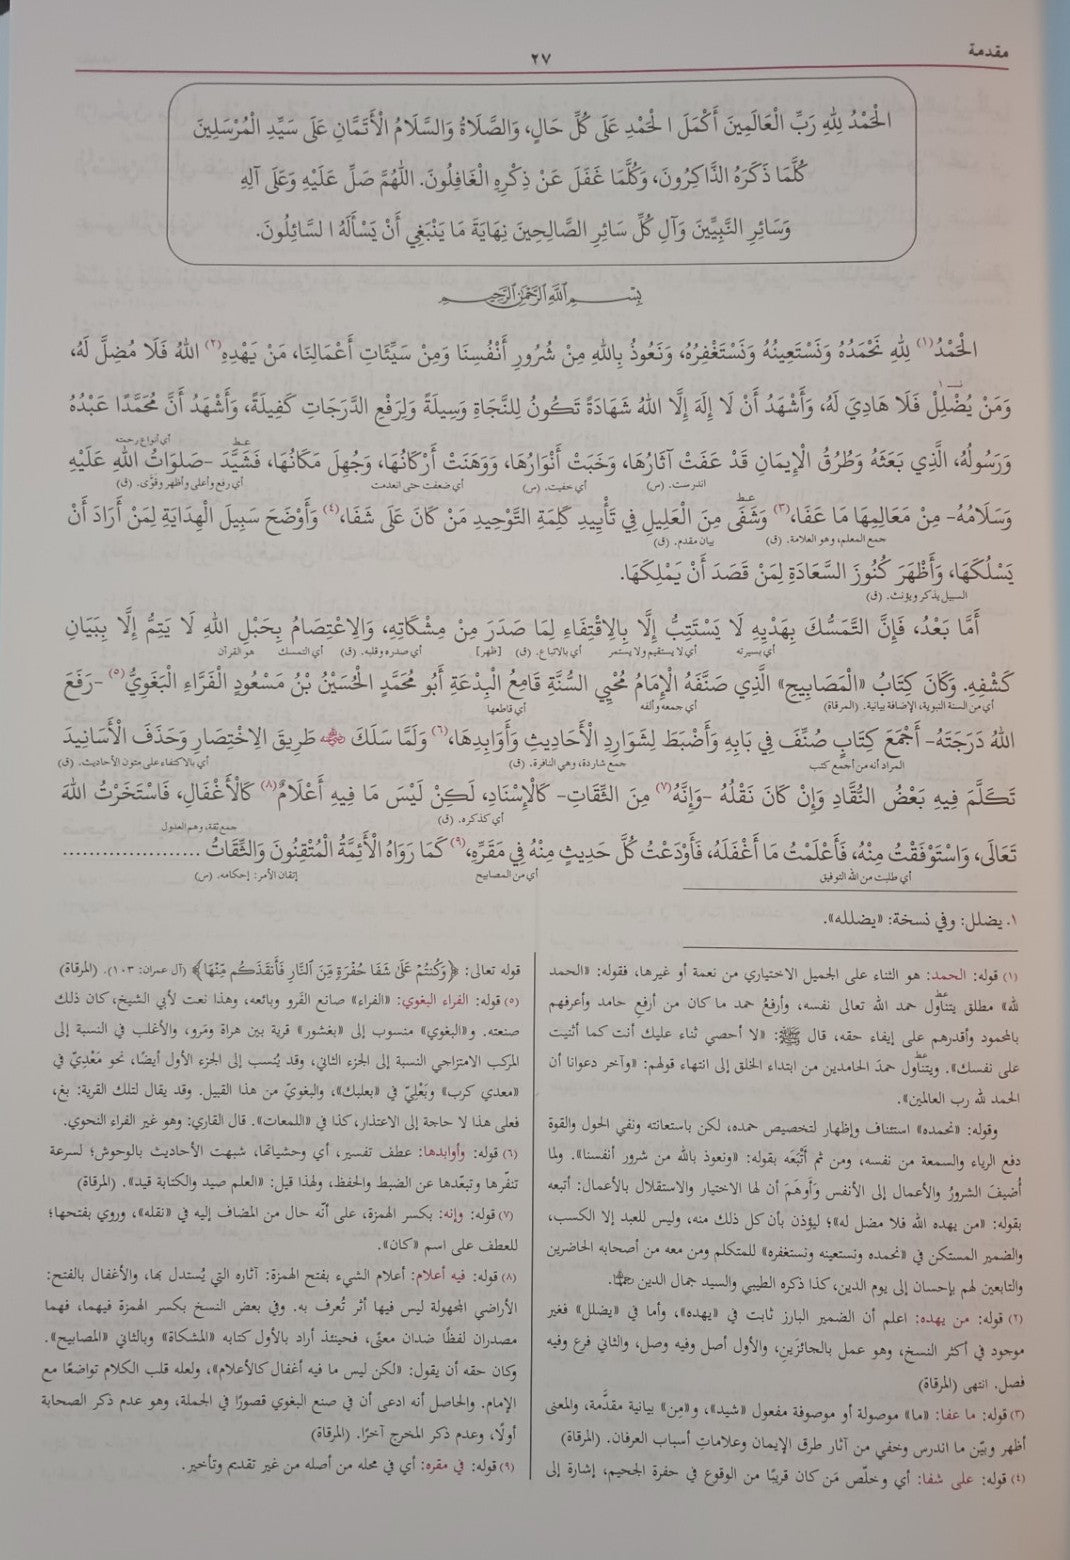 مقدمة
٢٧
الْحَمْدُ لِلّٰهِ رَبِّ الْعَالَمِينَ أَكْمَلَ الْحَمْدِ عَلَى كُلِّ حَالٍ، وَالصَّلَاةُ وَالسَّلَامُ الْأَتَمَّانِ عَلَى سَيِّدِ الْمُرْسَلِينَ
كُلَّمَا ذَكَرَهُ الذَّاكِرُونَ، وَكُلَّمَا غَفَلَ عَنْ ذِكْرِهِ الْغَافِلُونَ. اللّٰهُمَّ صَلِّ عَلَيْهِ وَعَلَى آلِهِ
وَسَائِرِ النَّبِيِّينَ وَآلِ كُلِّ سَائِرِ الصَّالِحِينَ نِهَايَةَ مَا يَنْبَغِي أَنْ يَسْأَلَهُ السَّائِلُونَ.
بِسْمِ اللّٰهِ الرَّحْمٰنِ الرَّحِيمِ
الْحَمْدُ(١) لِلّٰهِ نَحْمَدُهُ وَنَسْتَعِينُهُ وَنَسْتَغْفِرُهُ، وَنَعُوذُ بِاللّٰهِ مِنْ شُرُورِ أَنْفُسِنَا وَمِنْ سَيِّئَاتِ أَعْمَالِنَا، مَنْ يَهْدِهِ(٢) اللّٰهُ فَلَا مُضِلَّ لَهُ،
وَمَنْ يُضْلِلْ١ فَلَا هَادِيَ لَهُ، وَأَشْهَدُ أَنْ لَا إِلَهَ إِلَّا اللّٰهُ شَهَادَةً تَكُونُ لِلنَّجَاةِ وَسِيلَةً وَلِرَفْعِ الدَّرَجَاتِ كَفِيلَةً، وَأَشْهَدُ أَنَّ مُحَمَّدًا عَبْدُهُ
عـط أي أنواع رحمته
وَرَسُولُهُ، الَّذِي بَعَثَهُ وَطُرُقُ الْإِيمَانِ قَدْ عَفَتْ آثَارُهَا، وَخَبَتْ أَنْوَارُهَا، وَوَهَنَتْ أَرْكَانُهَا، وَجُهِلَ مَكَانُهَا، فَشَيَّدَ -صَلَوَاتُ اللّٰهِ عَلَيْهِ
اندرست. (س) أي خفيت. (س) أي ضعفت حتى انعدمت أي رفع وأعلى وأظهر وقوّى. (ق)
عـط
وَسَلَامُهُ- مِنْ مَعَالِمِهَا مَا عَفَا،(٣) وَشَفَى مِنَ الْعَلِيلِ فِي تَأْيِيدِ كَلِمَةِ التَّوْحِيدِ مَنْ كَانَ عَلَى شَفَا،(٤) وَأَوْضَحَ سَبِيلَ الْهِدَايَةِ لِمَنْ أَرَادَ أَنْ
جمع المعلم، وهو العلامة. (ق) بيان مقدم. (ق)
يَسْلُكَهَا، وَأَظْهَرَ كُنُوزَ السَّعَادَةِ لِمَنْ قَصَدَ أَنْ يَمْلِكَهَا.
السبيل يذكر ويؤنث. (ق)
أَمَّا بَعْدُ، فَإِنَّ التَّمَسُّكَ بِهَدْيِهِ لَا يَسْتَتِبُّ إِلَّا بِالِاقْتِفَاءِ لِمَا صَدَرَ مِنْ مِشْكَاتِهِ، وَالِاعْتِصَامُ بِحَبْلِ اللّٰهِ لَا يَتِمُّ إِلَّا بِبَيَانِ
أي بسيرته أي لا يستقيم ولا يستمر أي بالاتباع. (ق) [ظهر] أي صدره وقلبه. (ق) أي التمسك هو القرآن
كَشْفِهِ. وَكَانَ كِتَابُ «الْمَصَابِيحِ» الَّذِي صَنَّفَهُ الْإِمَامُ مُحْيِي السُّنَّةِ قَامِعُ الْبِدْعَةِ أَبُو مُحَمَّدٍ الْحُسَيْنُ بْنُ مَسْعُودٍ الْفَرَّاءِ الْبَغَوِيُّ(٥) -رَفَعَ
أي من السنة النبوية، الإضافة بيانية. (المرقاة) أي جمعه وألفه أي قاطعها
اللّٰهُ دَرَجَتَهُ- أَجْمَعَ كِتَابٍ صُنِّفَ فِي بَابِهِ وَأَضْبَطَ لِشَوَارِدِ الْأَحَادِيثِ وَأَوَابِدِهَا،(٦) وَلَمَّا سَلَكَ ﵁ طَرِيقَ الِاخْتِصَارِ وَحَذَفَ الْأَسَانِيدَ
المراد أنه من أجمع كتب جمع شاردة، وهي النافرة. (ق) أي بالاكتفاء على متون الأحاديث. (ق)
تَكَلَّمَ فِيهِ بَعْضُ النُّقَّادِ وَإِنْ كَانَ نَقْلُهُ -وَإِنَّهُ(٧) مِنَ الثِّقَاتِ- كَالْإِسْنَادِ، لَكِنْ لَيْسَ مَا فِيهِ أَعْلَامٌ(٨) كَالْأَغْفَالِ، فَاسْتَخَرْتُ اللّٰهَ
أي كذكره. (ق) جمع ثقة، وهم العدول
تَعَالَى، وَاسْتَوْفَقْتُ مِنْهُ، فَأَعْلَمْتُ مَا أَغْفَلَهُ، فَأَوْدَعْتُ كُلَّ حَدِيثٍ مِنْهُ فِي مَقَرِّهِ،(٩) كَمَا رَوَاهُ الْأَئِمَّةُ الْمُتْقِنُونَ وَالثِّقَاتُ .....................
أي طلبت من الله التوفيق أي من المصابيح إتقان الأمر: إحكامه. (س)
١. يضلل: وفي نسخة: «يضلله».
(١) قوله: الحمد: هو الثناء على الجميل الاختياري من نعمة أو غيرها، فقوله: «الحمد
لله» مطلق يتناول حمد الله تعالى نفسه، وأرفعُ حمد ما كان من أرفعِ حامد وأعرفهم
بالمحمود وأقدرهم على إيفاء حقه، قال ﷺ: «لا أحصي ثناء عليك أنت كما أثنيت
على نفسك». ويتناول حمدَ الحامدين من ابتداء الخلق إلى انتهاء قولهم: «وآخر دعوانا أن
الحمد لله رب العالمين».
وقوله: «نحمده» استئناف وإظهار لتخصيص حمده، لكن باستعانته ونفي الحول والقوة
دفع الرياء والسمعة من نفسه، ومن ثم أَتْبَعَه بقوله: «ونعوذ بالله من شرور أنفسنا». ولما
أُضيفَ الشرورُ والأعمال إلى الأنفس وَأَوهَمَ أن لها الاختيار والاستقلال بالأعمال: أتبعه
بقوله: «من يهده الله فلا مضل له»؛ ليؤذن بأن كل ذلك منه، وليس للعبد إلا الكسب،
والضمير المستكن في «نحمده ونستعينه ونستغفره» للمتكلم ومن معه من أصحابه الحاضرين
والتابعين لهم بإحسان إلى يوم الدين، كذا ذكره الطيبي والسيد جمال الدين رحمهما.
(٢) قوله: من يهده: اعلم أن الضمير البارز ثابت في «يهده»، وأما في «يضلل» فغير
موجود في أكثر النسخ، وهو عمل بالجائزَين، والأول أصل وفيه وصل، والثاني فرع وفيه
فصل. انتهى (المرقاة)
(٣) قوله: ما عفا: «ما» موصولة أو موصوفة مفعول «شيد»، و«مِن» بيانية مقدَّمة، والمعنى
أظهر وبيّن ما اندرس وخفي من آثار طرق الإيمان وعلاماتِ أسباب العرفان. (المرقاة)
(٤) قوله: على شفا: أي وخلّص مَن كان قريبًا من الوقوع في حفرة الجحيم، إشارة إلى
قوله تعالى: ﴿وَكُنتُمْ عَلَىٰ شَفَا حُفْرَةٍ مِّنَ ٱلنَّارِ فَأَنقَذَكُم مِّنْهَا﴾ (آل عمران: ١٠٣). (المرقاة)
(٥) قوله: الفراء البغوي: «الفراء» صانع الفَرو وبائعه، وهذا نعت لأبي الشيخ، كان ذلك
صنعته. و«البغوي» منسوب إلى «بغشور» قرية بين هراة ومَرو، والأغلب في النسبة إلى
المركب الامتزاجي النسبة إلى الجزء الثاني، وقد يُنسب إلى الجزء الأول أيضًا، نحو مَعْدِيّ في
«معدي كرب» وبَعْلِيّ في «بعلبك»، والبغويّ من هذا القبيل. وقد يقال لتلك القرية: بغ،
فعلى هذا لا حاجة إلى الاعتذار، كذا في «اللمعات». قال القاري: وهو غير الفراء النحوي.
(٦) قوله: وأوابدها: عطف تفسير، أي وحشياتها، شبهت الأحاديث بالوحوش؛ لسرعة
تنفّرها وتبعّدها عن الضبط والحفظ، ولهذا قيل: «العلم صيد والكتابة قيد». (المرقاة)
(٧) قوله: وإنه: بكسر الهمزة، على أنّه حال من المضاف إليه في «نقله»، وروي بفتحها؛
للعطف على اسم «كان».
(٨) قوله: فيه أعلام: أعلام الشيء بفتح الهمزة: آثاره التي يُستدل بها، والأغفال بالفتح:
الأراضي المجهولة ليس فيها أثر تُعرف به. وفي بعض النسخ بكسر الهمزة فيهما، فهما
مصدران لفظًا ضدان معنًى، فحينئذ أراد بالأول كتابه «المشكاة» وبالثاني «المصابيح».
وكان حقه أن يقول: «لكن ليس ما فيه أغفال كالأعلام»، ولعله قلب الكلام تواضعًا مع
الإمام. والحاصل أنه ادعى أن في صنع البغوي قصورًا في الجملة، وهو عدم ذكر الصحابة
أولًا، وعدم ذكر المخرج آخرًا. (المرقاة)
(٩) قوله: في مقره: أي في محله من أصله من غير تقديم وتأخير.